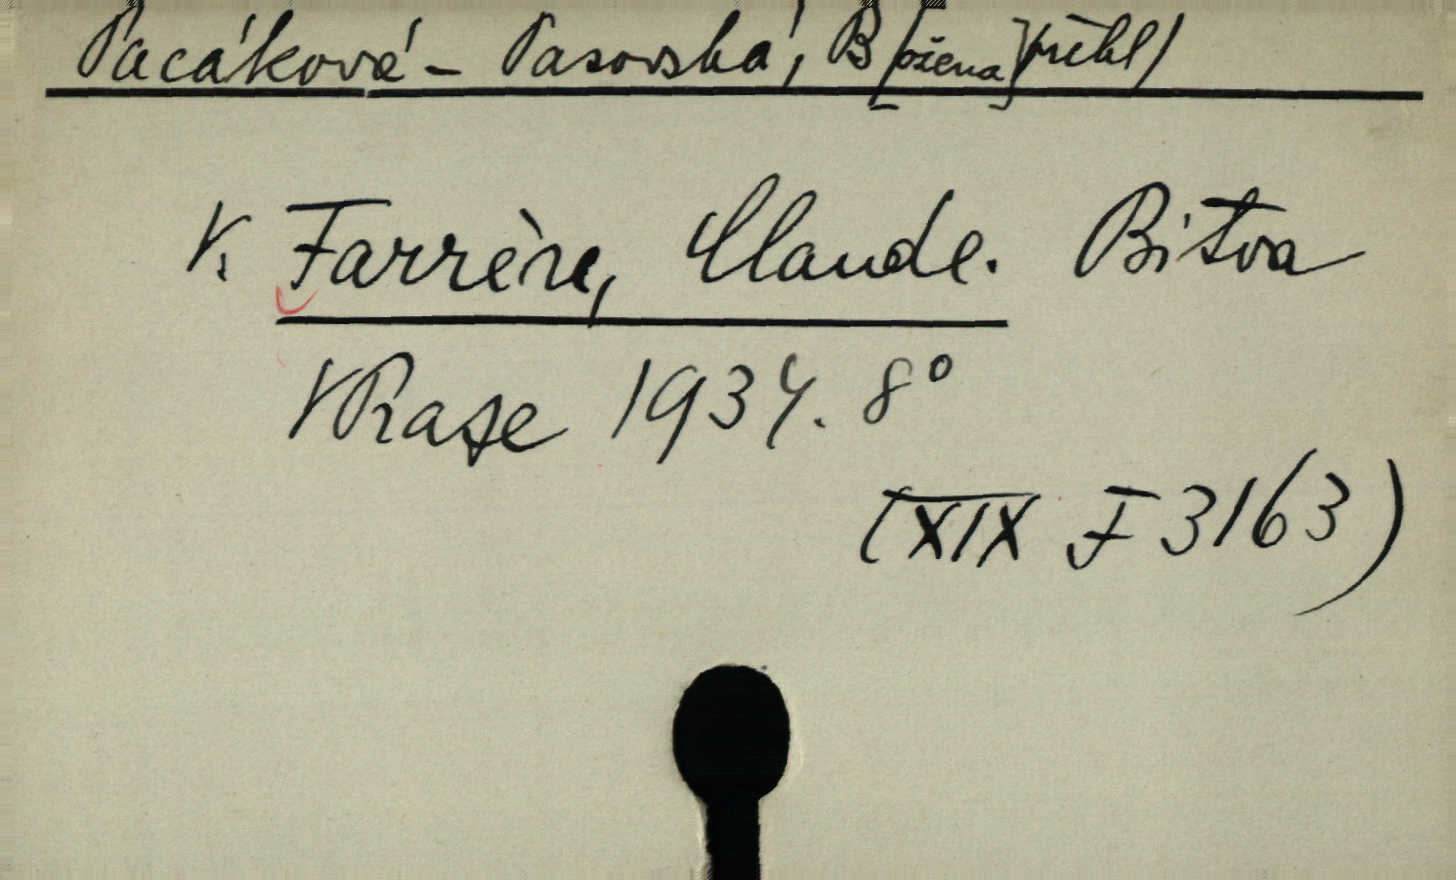 Pacáková - Pasovská, B[ožena] /překl/
V. Farrère, Claude. Bitva
V Praze 1934. 8°
(XIX F 3163)